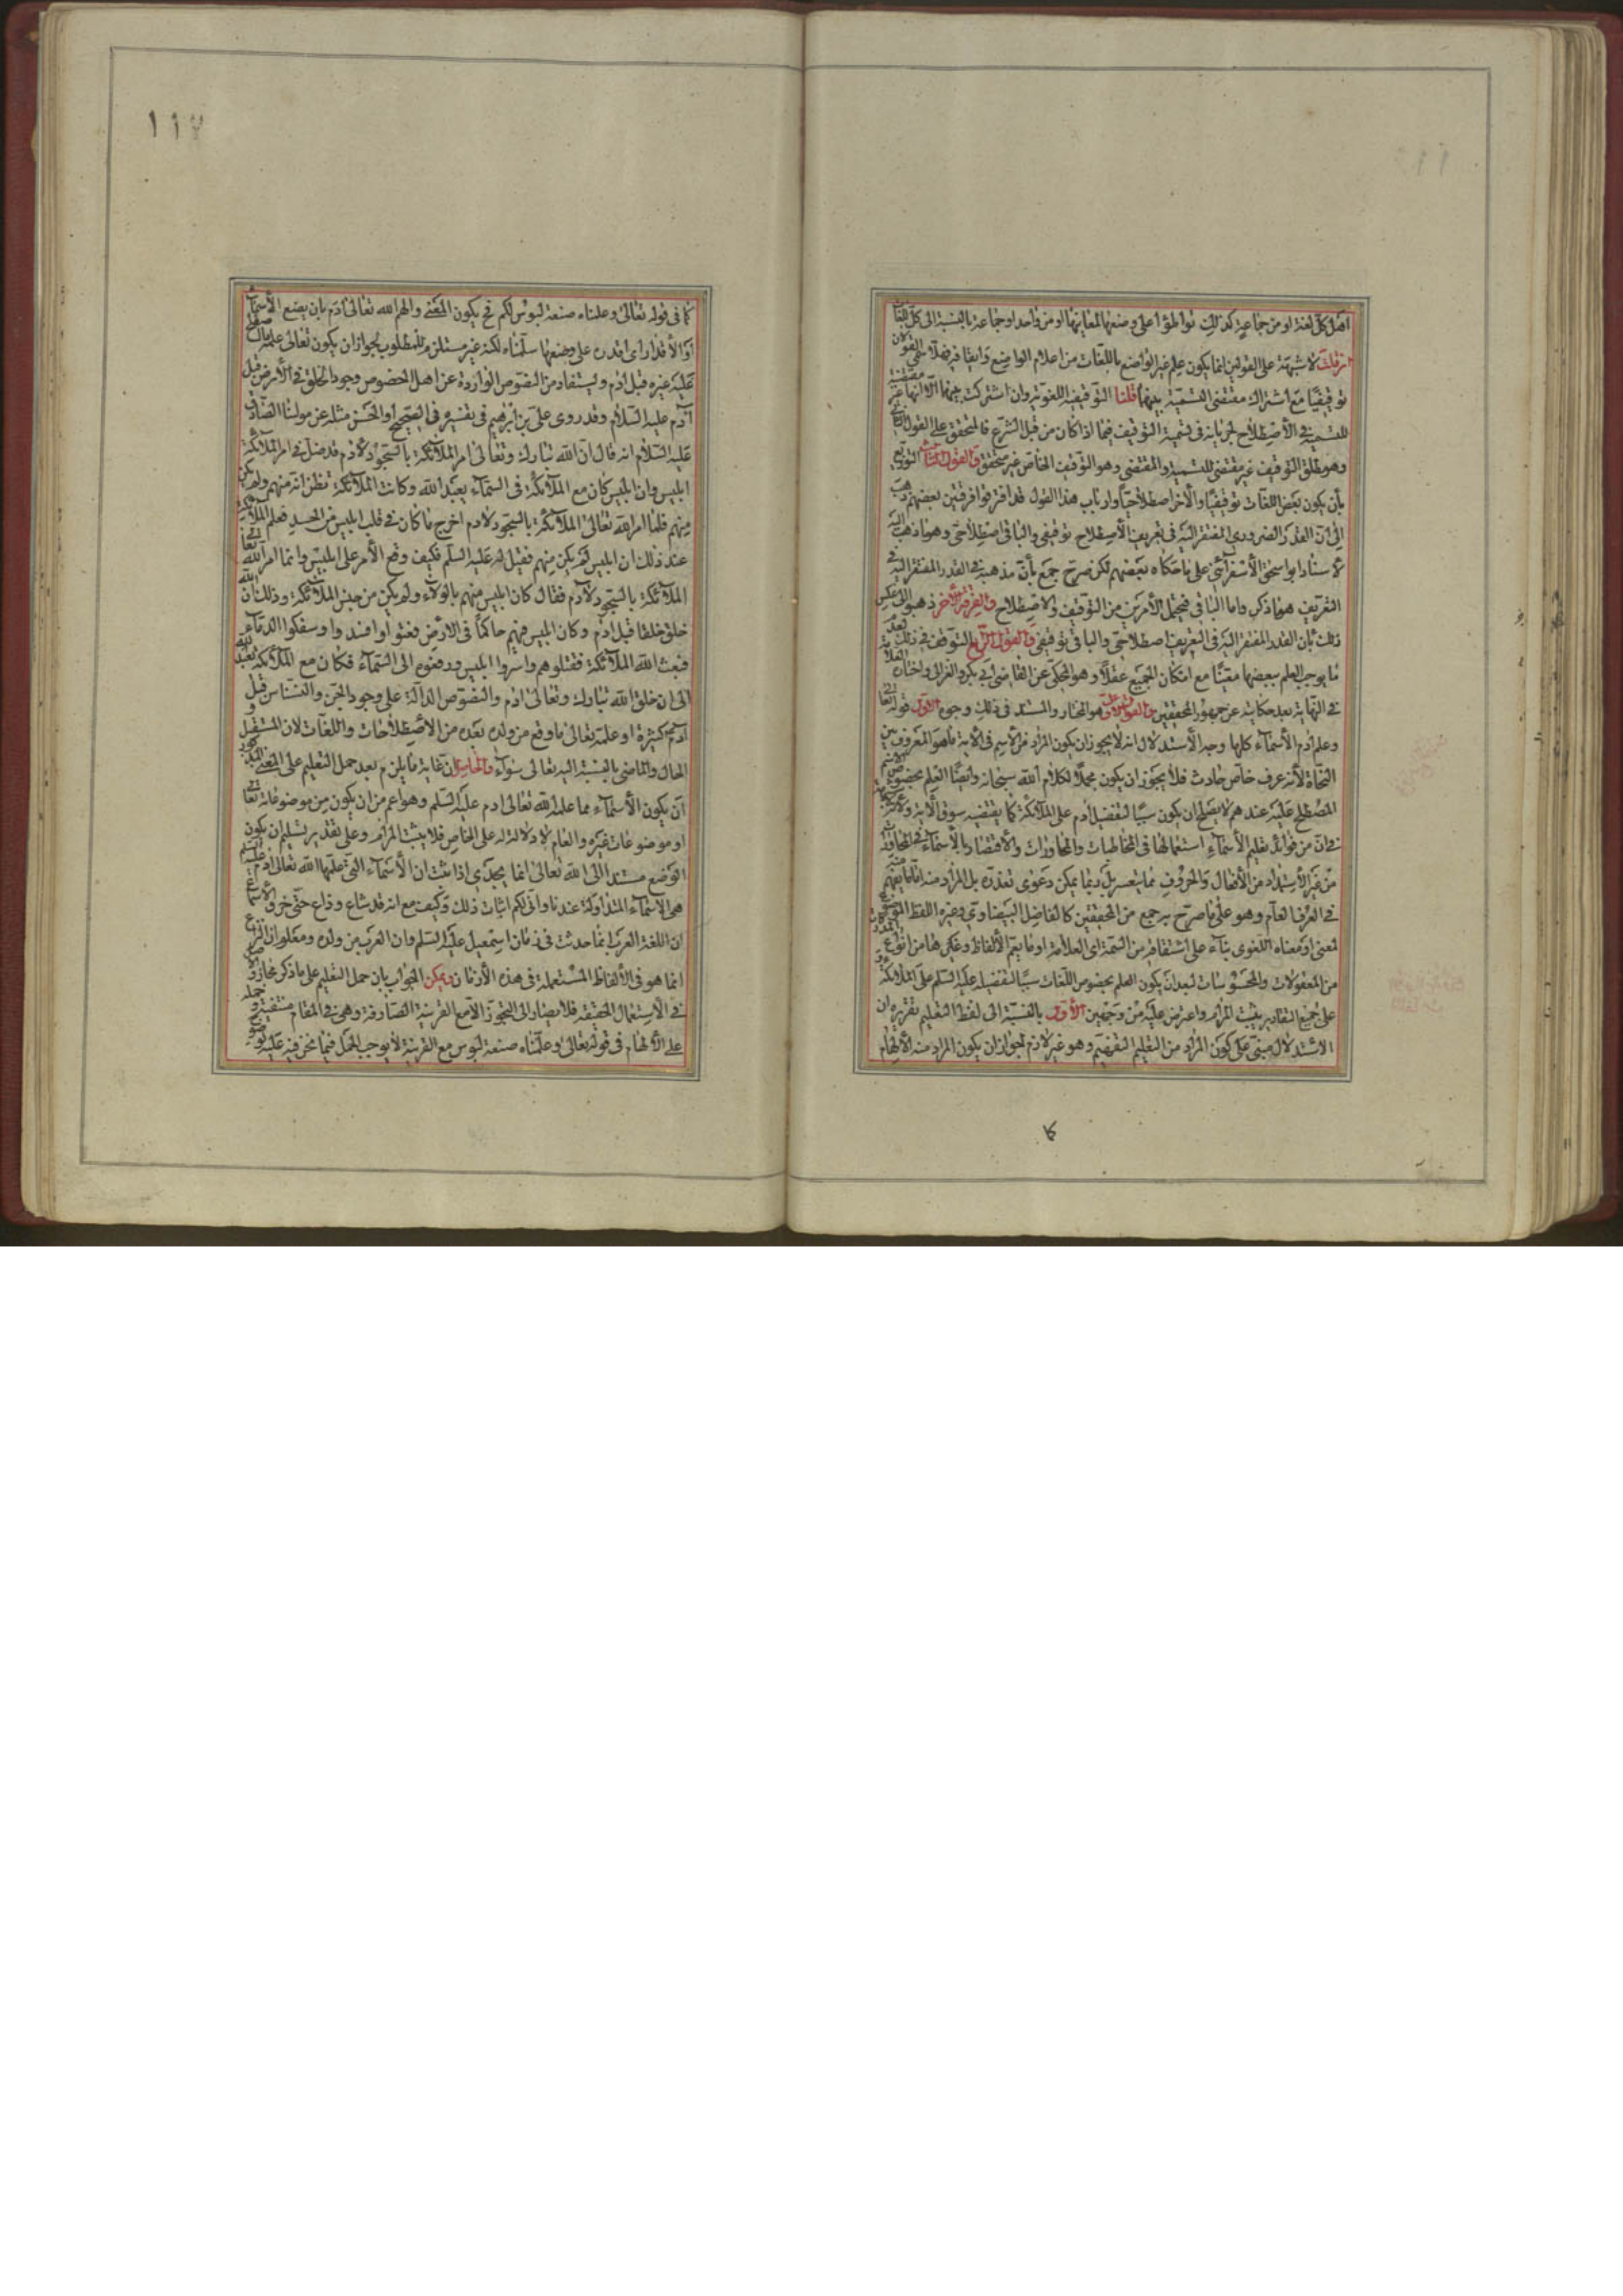 اهل كل لغة او من جماعة كذلك تواطؤا على وضعها لمعانيها او من واحد او جماعة بالنسبة الى كل اللغات
فان قلت لا شبهة على القولين انما يكون علم غير الواضع باللغات من اعلام الواضع وايقافه فهلا سمى القولان
توقيفيا مع اشتراك مقتضى التسمية بينهما قلنا التوقيفية اللغوية وان اشتركت بينهما الا انها غير مقتضية
للتسمية في الأصطلاح لجريانه فى تسمية التوقيف فيما اذا كان من قبل الشرع فالمتحقق على القول الثانى
وهو مطلق التوقيف غير مقتضى للتسمية والمقتضى وهو التوقيف الخاص غير متحقق والقول الثالث التوزيع
بأن يكون بعض اللغات توقيفيا والآخر اصطلاحيا وارباب هذا القول قد افترقوا فرقتين بعضهم ذهب
إلى أن القدر الضرورى المفتقر اليه فى تعريف الأصطلاح توقيفى والباقى اصطلاحى وهو ما ذهب اليه
الأستاد ابو اسحق الأسفرائنى على ما حكاه بعضهم لكن صرح جمع بأن مذهبه فى القدر المفتقر اليه فى
التعريف هو ما ذكر واما الباقى فيحتمل الأمرين من التوقيف والاصطلاح والفرقة الأخر ذهبوا الى عكس
ذلك بأن القدر المفتقر اليه فى التعريف اصطلاحى والباقى توقيفى والقول الرابع التوقف فى ذلك لعدم
ما يوجب العلم ببعضها معينا مع امكان الجميع عقلا وهو المحكى عن القاضى أبي بكر والغزالى واختاره العلامة
فى النهاية بعد حكايته عن جمهور المحققين والقول الأول هو المختار والمستند فى ذلك وجوه الأول قوله تعالى
وعلم ادم الأسماء كلها وجه الأستدلال انه لا يجوز ان يكون المراد من الأسم فى الآية ما هو المعروف بين
النحاة لأنه عرف خاص حادث فلا يجوز ان يكون محملا لكلام الله سبحانه وايضا العلم بخصوص الاسم
المصطلح عليه عندهم لا يصلح ان يكون سببا لتفضيل ادم على الملائكة كما يقتضيه سوق الآية
من غير الأستمداد من الأفعال والحروف مما يتعسر بل ربما يمكن دعوى تعذره بل المراد منه اما ما يفهم منه
فى العرف العام وهو على ما صرح به جمع من المحققين كالفاضل البيضاوي وغيره اللفظ الموضوع
لمعنى او معناه اللغوى بناء على اشتقاقه من السمة اى العلامة او ما يعم الألفاظ وغيرها من انواع المدركات
من المعقولات والمحسوسات لبعد ان يكون العلم بخصوص اللغات سببا لتفضيله عليه السلم على الملائكة
على جميع التقادير يثبت المرام واعترض عليه من وجهين الأول بالنسبة الى لفظ التعليم تقريره ان
الاستدلال مبنى على كون المراد من التعليم التفهيم وهو غير لازم لجواز ان يكون المراد منه الألهام
١١٧
كما فى قوله تعالى وعلمناه صنعة لبوس لكم فح يكون المعنى والهم الله تعالى ادم بان يضع الأسماء
او الأقدار اى اقدره على وضعها سلمناه لكنه غير مستلزم للمطلوب لجواز ان يكون تعالى علمه ما
عليه غيره قبل ادم ويستفاد من النصوص الواردة عن اهل الخصوص وجود الخلق فى الأرض قبل
آدم عليه السلام وقد روى على بن ابرهيم فى تفسيره فى الصحيح او الحسن مثله عن مولنا الصادق
عليه السلام انه قال ان الله تبارك وتعالى امر الملائكة بالسجود لأدم فدخل فى امر الملائكة
ابليس وان ابليس كان مع الملائكة فى السماء يعبد الله وكانت الملائكة تظن انه منهم ولم يكن
منهم فلما امر الله تعالى الملائكة بالسجود لادم اخرج ما كان فى قلب ابليس من الحسد فعلم الملائكة
عند ذلك ان ابليس لم يكن منهم فقيل له عليه السلم فكيف وقع الأمر على ابليس وانما امر الله تعالى
الملائكة بالسجود لادم فقال كان ابليس منهم بالولاء ولم يكن من جنس الملائكة وذلك ان الله
خلق خلقا قبل ادم وكان ابليس فيهم حاكما فى الارض فعتوا وافسدوا وسفكوا الدماء
فبعث الله الملائكة فقتلوهم واسروا ابليس ورفعوه الى السماء فكان مع الملائكة يعبد الله
الى ان خلق الله تبارك وتعالى ادم والنصوص الدالة على وجود الجن والنسناس قبل
آدم كثيرة او علمه تعالى ما وقع من ولده بعده من الأصطلاحات واللغات لان المستقبل و
الحال والماضى بالنسبة اليه تعالى سواء والحاصل ان غاية ما يلزم بعد حمل التعليم على المعنى المذكور
أن يكون الأسماء مما علمه الله تعالى ادم عليه السلم وهو اعم من ان يكون من موضوعاته تعالى
او موضوعات غيره والعام لا دلالة له على الخاص فلا يثبت المرام وعلى تقدير تسليم ان يكون
الوضع مستندا الى الله تعالى انما يجدي اذا ثبت ان الأسماء التى علمها الله تعالى ادم عليه السلم
هى الاسماء المتداولة عندنا وانى لكم اثبات ذلك وكيف مع انه قد شاع وذاع حتى خرق الأسماع
ان اللغة العرب انما حدثت فى زمان اسمعيل عليه السلم وان العرب من ولده ومعلوم ان النزاع
انما هو فى الألفاظ المستعملة فى هذه الأزمان ويمكن الجواب بان حمل التعليم على ما ذكر مجاز والأصل
فى الأستعمال الحقيقة فلا يصار الى التجوز الا مع القرينة الصارفة وهى فى المقام منتفية وحمله
على الألهام فى قوله تعالى وعلمناه صنعة لبوس مع القرينة لا يوجب الحمل فيما نحن فيه عليه
كا